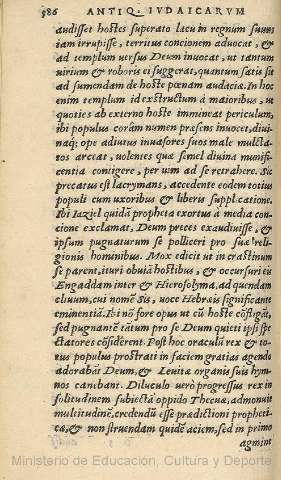 586 ANTIQ. IVDAICARVM
audisset hostes superato lacu in regnum suum
iam irrupisse, territus concionem aduocat, &
ad templum versus Deum inuocat, ut tantum
uirium & roboris ei suggerat, quantum satis sit
ad sumendam de hoste pœnam audacia. In hoc
enim templum id exstructum à maioribus, ut
quoties ab externo hoste immineat periculum,
ibi populus coràm numen præsens inuocet, diui-
naq; ope adiutus inuasores suos male mulcta-
tos arceat, uolentes qua semel diuina munifi-
centia contigere, per uim ad se retrahere. Sic
precatus est lacrymans, accedente eodem totius
populi cum uxoribus & liberis supplicatione.
Ibi Iaziel quidā propheta exortus à media con-
cione exclamat, Deum preces exaudiuisse, &
ipsum pugnaturum se polliceri pro suæ reli-
gionis hominibus. Mox edicit ut in crastinum
se parent, ituri obuiā hostibus, & occursuri eis
Engaddam inter & Hierosolyma, ad quendam
cliuum, cui nomē Sis, uoce Hebraïs significante
eminentiā. Ibi nō fore opus ut cū hoste cōfligāt,
sed pugnantē tātum pro se Deum quieti ipsi spe-
ctatores cōsiderent. Post hoc oraculū rex & to-
tus populus prostrati in faciem gratias agendo
adorabāt Deum, & Leuitæ organis suis hym-
nos canebant. Diluculo verò progressus rex in
solitudinem subiectā oppido Thecuæ, admonuit
multitudinē, credendū esse prædictioni propheti-
cæ, & non struendam quidē aciem, sed in primo
agmine
Ministerio de Educación, Cultura y Deporte